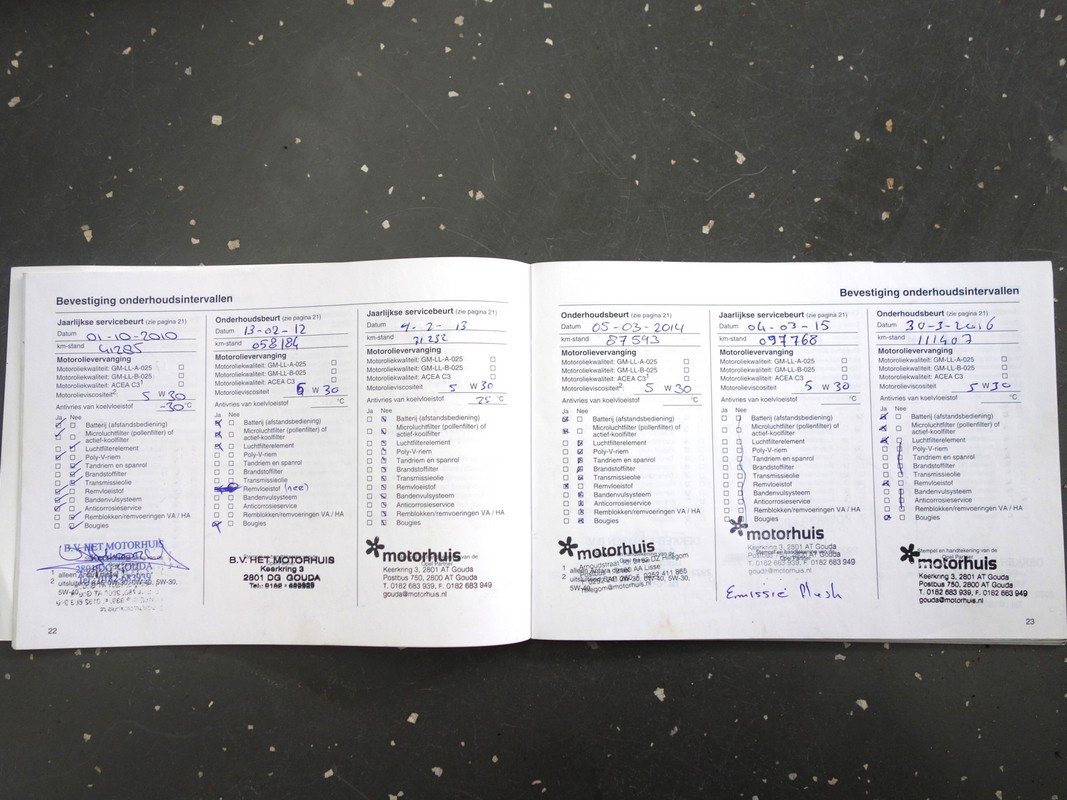 Bevestiging onderhoudsintervallen
Jaarlijkse servicebeurt (zie pagina 21)
Datum 01-10-2010
km-stand 41285
Motorolievervanging
Motoroliekwaliteit: GM-LL-A-025
Motoroliekwaliteit: GM-LL-B-025
Motoroliekwaliteit: ACEA C3¹
Motorolieviscositeit²: 5 W 30
Antivries van koelvloeistof -30 °C
Ja Nee
Batterij (afstandsbediening)
Microluchtfilter (pollenfilter) of
actief-koolfilter
Luchtfilterelement
Poly-V-riem
Tandriem en spanrol
Brandstoffilter
Transmissieolie
Remvloeistof
Bandenvulsysteem
Anticorrosieservice
Remblokken/remvoeringen VA / HA
Bougies
B.V. HET MOTORHUIS
22
Onderhoudsbeurt (zie pagina 21)
Datum 13-02-12
km-stand 058184
Motorolievervanging
Motoroliekwaliteit: GM-LL-A-025
Motoroliekwaliteit: GM-LL-B-025
Motoroliekwaliteit: ACEA C3
Motorolieviscositeit 5 W 30
Antivries van koelvloeistof °C
Ja Nee
Batterij (afstandsbediening)
Microluchtfilter (pollenfilter) of
actief-koolfilter
Luchtfilterelement
Poly-V-riem
Tandriem en spanrol
Brandstoffilter
Transmissieolie
Remvloeistof (nee)
Bandenvulsysteem
Anticorrosieservice
Remblokken/remvoeringen VA / HA
Bougies
B.V. HET MOTORHUIS
Keerkring 3
2801 DG GOUDA
Jaarlijkse servicebeurt (zie pagina 21)
Datum 4-2-13
km-stand 71252
Motorolievervanging
Motoroliekwaliteit: GM-LL-A-025
Motoroliekwaliteit: GM-LL-B-025
Motoroliekwaliteit: ACEA C3
Motorolieviscositeit 5 W 30
Antivries van koelvloeistof 25 °C
Ja Nee
Batterij (afstandsbediening)
Microluchtfilter (pollenfilter) of
actief-koolfilter
Luchtfilterelement
Poly-V-riem
Tandriem en spanrol
Brandstoffilter
Transmissieolie
Remvloeistof
Bandenvulsysteem
Anticorrosieservice
Remblokken/remvoeringen VA / HA
Bougies
motorhuis
Opel Partner
Keerkring 3, 2801 AT Gouda
Postbus 750, 2800 AT Gouda
T. 0182 683 939, F. 0182 683 949
gouda@motorhuis.nl
Bevestiging onderhoudsintervallen
Onderhoudsbeurt (zie pagina 21)
Datum 05-03-2014
km-stand 87593
Motorolievervanging
Motoroliekwaliteit: GM-LL-A-025
Motoroliekwaliteit: GM-LL-B-025
Motoroliekwaliteit: ACEA C3¹
Motorolieviscositeit²: 5 W 30
Antivries van koelvloeistof °C
Ja Nee
Batterij (afstandsbediening)
Microluchtfilter (pollenfilter) of
actief-koolfilter
Luchtfilterelement
Poly-V-riem
Tandriem en spanrol
Brandstoffilter
Transmissieolie
Remvloeistof
Bandenvulsysteem
Anticorrosieservice
Remblokken/remvoeringen VA / HA
Bougies
motorhuis
Jaarlijkse servicebeurt (zie pagina 21)
Datum 04-03-15
km-stand 097768
Motorolievervanging
Motoroliekwaliteit: GM-LL-A-025
Motoroliekwaliteit: GM-LL-B-025
Motoroliekwaliteit: ACEA C3
Motorolieviscositeit 5 W 30
Antivries van koelvloeistof °C
Ja Nee
Batterij (afstandsbediening)
Microluchtfilter (pollenfilter) of
actief-koolfilter
Luchtfilterelement
Poly-V-riem
Tandriem en spanrol
Brandstoffilter
Transmissieolie
Remvloeistof
Bandenvulsysteem
Anticorrosieservice
Remblokken/remvoeringen VA / HA
Bougies
motorhuis
Keerkring 3, 2801 AT Gouda
Emissie
Onderhoudsbeurt (zie pagina 21)
Datum
km-stand 111407
Motorolievervanging
Motoroliekwaliteit: GM-LL-A-025
Motoroliekwaliteit: GM-LL-B-025
Motoroliekwaliteit: ACEA C3
Motorolieviscositeit 5 W 30
Antivries van koelvloeistof °C
Ja Nee
Batterij (afstandsbediening)
Microluchtfilter (pollenfilter) of
actief-koolfilter
Luchtfilterelement
Poly-V-riem
Tandriem en spanrol
Brandstoffilter
Transmissieolie
Remvloeistof
Bandenvulsysteem
Anticorrosieservice
Remblokken/remvoeringen VA / HA
Bougies
Stempel en handtekening van de
motorhuis
Keerkring 3, 2801 AT Gouda
Postbus 750, 2800 AT Gouda
T. 0182 683 939, F. 0182 683 949
gouda@motorhuis.nl
23